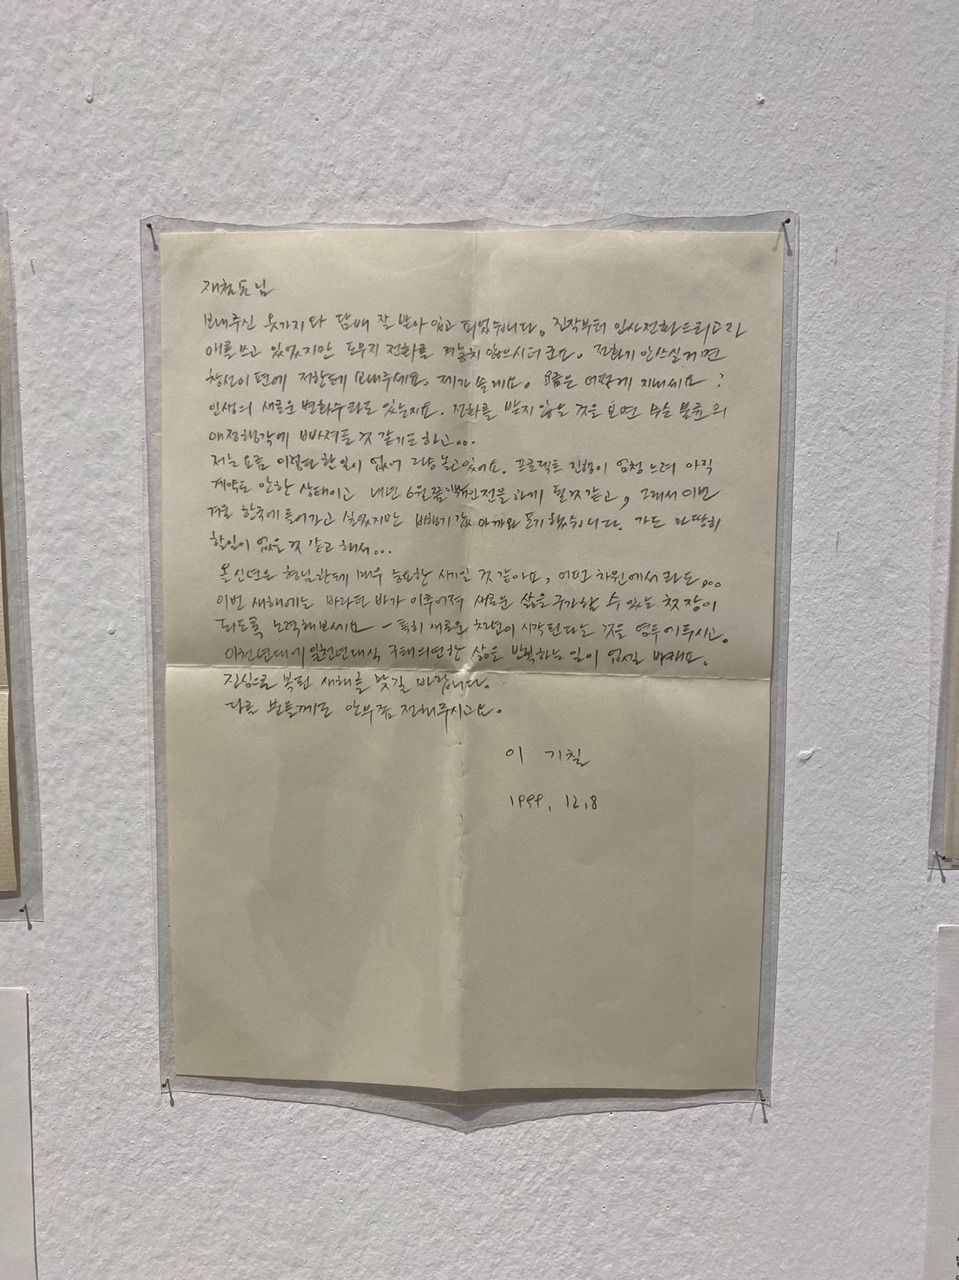 재철형님
보내주신 옷가지와 담배 잘 받아 입고 피었습니다. 진작부터 인사전화드리고자
애를 쓰고 있었지만 도무지 전화를 켜놓지 않으시더군요. 전화기 안쓰실거면
창선이편에 저한테 보내주세요. 제가 쓸께요. 요즘은 어떻게 지내세요?
인생의 새로운 변화수라도 있는지요. 전화를 받지 않는 것을 보면 수순 불륜의
애정행각에 빠져든 것 같기도하고...
저는 요즘 이렇다할 일이 없어 그냥 놀고있어요. 프로젝트 진행이 엄청 느려 아직
계약도 안한 상태이고 내년 6월쯤 전을 하게 될것 같고, 그래서 이번
겨울 한국에 들어가고 싶었지만 비행기값 아까와 포기했습니다. 가도 마땅히
할일이 없을것 같고 해서...
올 신년은 형님한테 매우 중요한 새해일 것 같아요, 어떤 차원에서라도...
이번 새해에는 바라던 바가 이루어져 새로운 삶을 구가할 수 있는 첫 장이
되도록 노력해보세요 - 특히 새로운 천년이 시작된다는 것을 염두에두시고.
이천년대에 일천년대식 구태의연한 삶을 반복하는 일이 없길 바래요.
진심으로 복된 새해를 맞길 바랍니다.
다른 분들께도 안부좀 전해주시고요.
이 기칠
1999. 12. 8